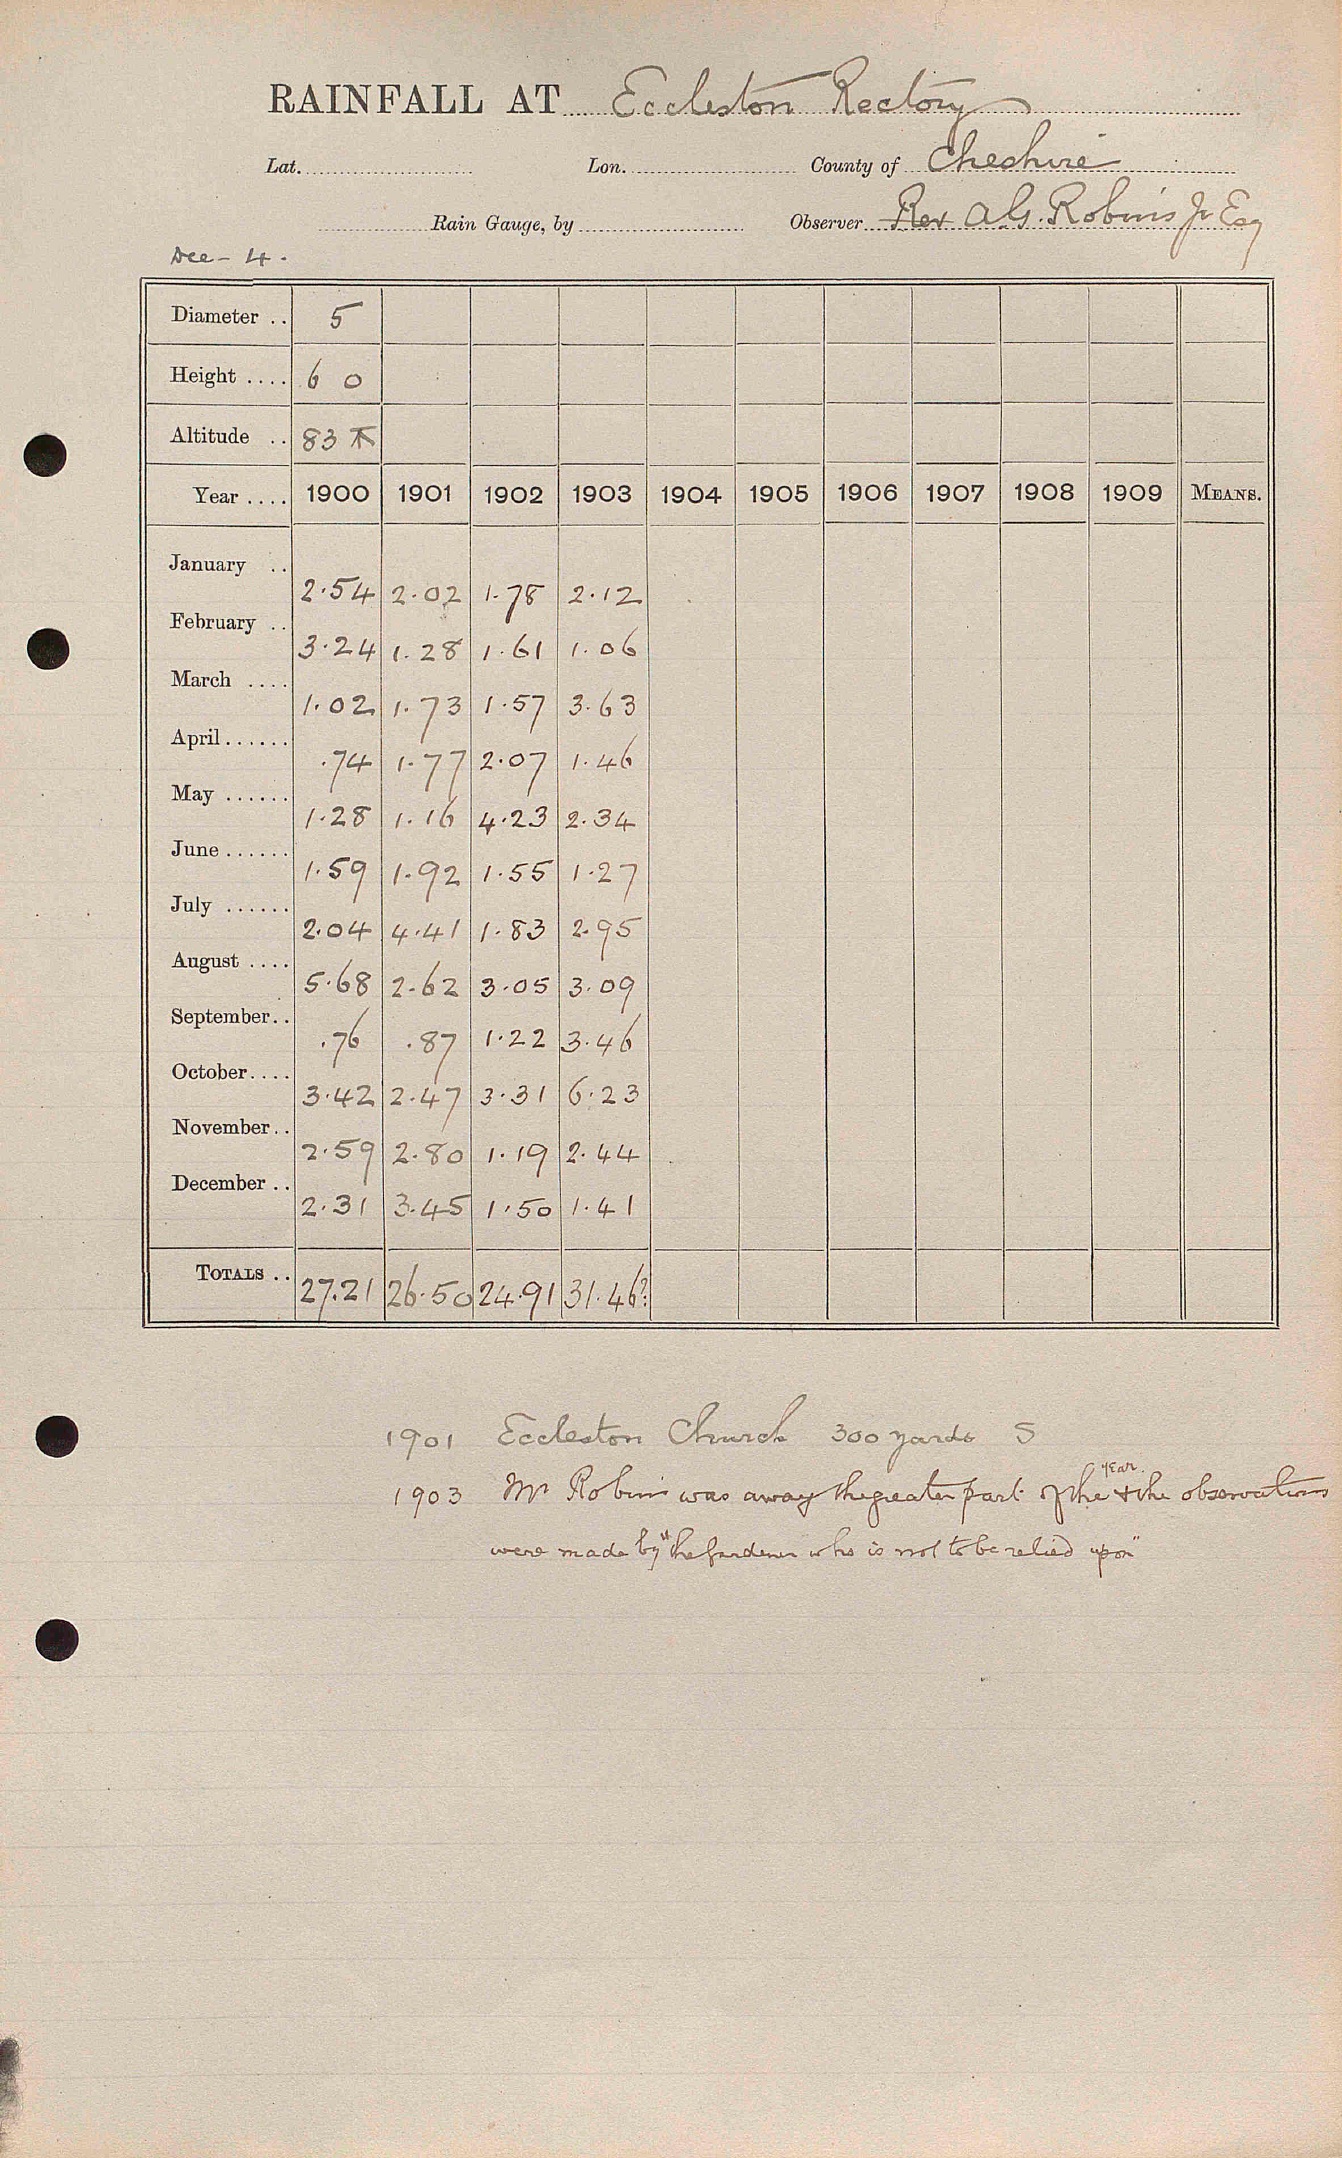 RAINFALL AT Eccleston Rectory
Lat. Lon. County of Cheshire
Rain Gauge, by Observer Rev A.G. Robins Jr Esq
Dee - 4.
Diameter .. 5
Height .... 6 0
Altitude .. 83
Year .... 1900 1901 1902 1903 1904 1905 1906 1907 1908 1909 MEANS.
January .. 2.54 2.02 1.78 2.12
February .. 3.24 1.28 1.61 1.06
March .... 1.02 1.73 1.57 3.63
April...... .74 1.77 2.07 1.46
May ...... 1.28 1.16 4.23 2.34
June ...... 1.59 1.92 1.55 1.27
July ...... 2.04 4.41 1.83 2.95
August .... 5.68 2.62 3.05 3.09
September.. .76 .87 1.22 3.46
October.... 3.42 2.47 3.31 6.23
November.. 2.59 2.80 1.19 2.44
December .. 2.31 3.45 1.50 1.41
TOTALS .. 27.21 26.50 24.91 31.46?
1901 Eccleston Church 300 yards S
1903 Mr Robin was away the greater part of the year & the observations
were made by "the gardener who is not to be relied upon"